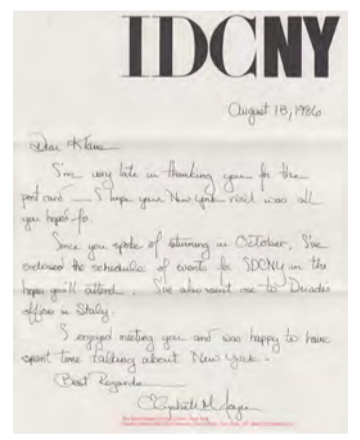 IDCNY
August 18, 1986
Dear Klaus
I'm very late in thanking you for the
post card — I hope your New York visit was all
you hoped for.
Since you spoke of returning in October, I've
enclosed the schedule of events for IDCNY in the
hopes you'll attend. I've also sent one to
offices in Italy.
I enjoyed meeting you and was happy to have
spent time talking about New York.
Best Regards
Elizabeth M.